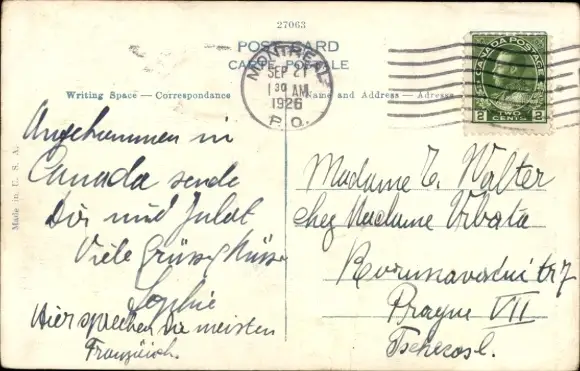 27063
POST CARD
CARTE POSTALE
MONTREAL
SEP 21
1 30 AM
1926
P. Q.
CANADA POSTAGE
2 2
TWO CENTS
Writing Space — Correspondance
Name and Address — Adresse
Made in U. S. A.
Angekommen in
Canada sende
Dir und
Viele Grüsse Küsse
Sophie
Hier sprechen die meisten
Französich.
Madame E. Walter
chez Madame Urbata
tr 7
Prague VII